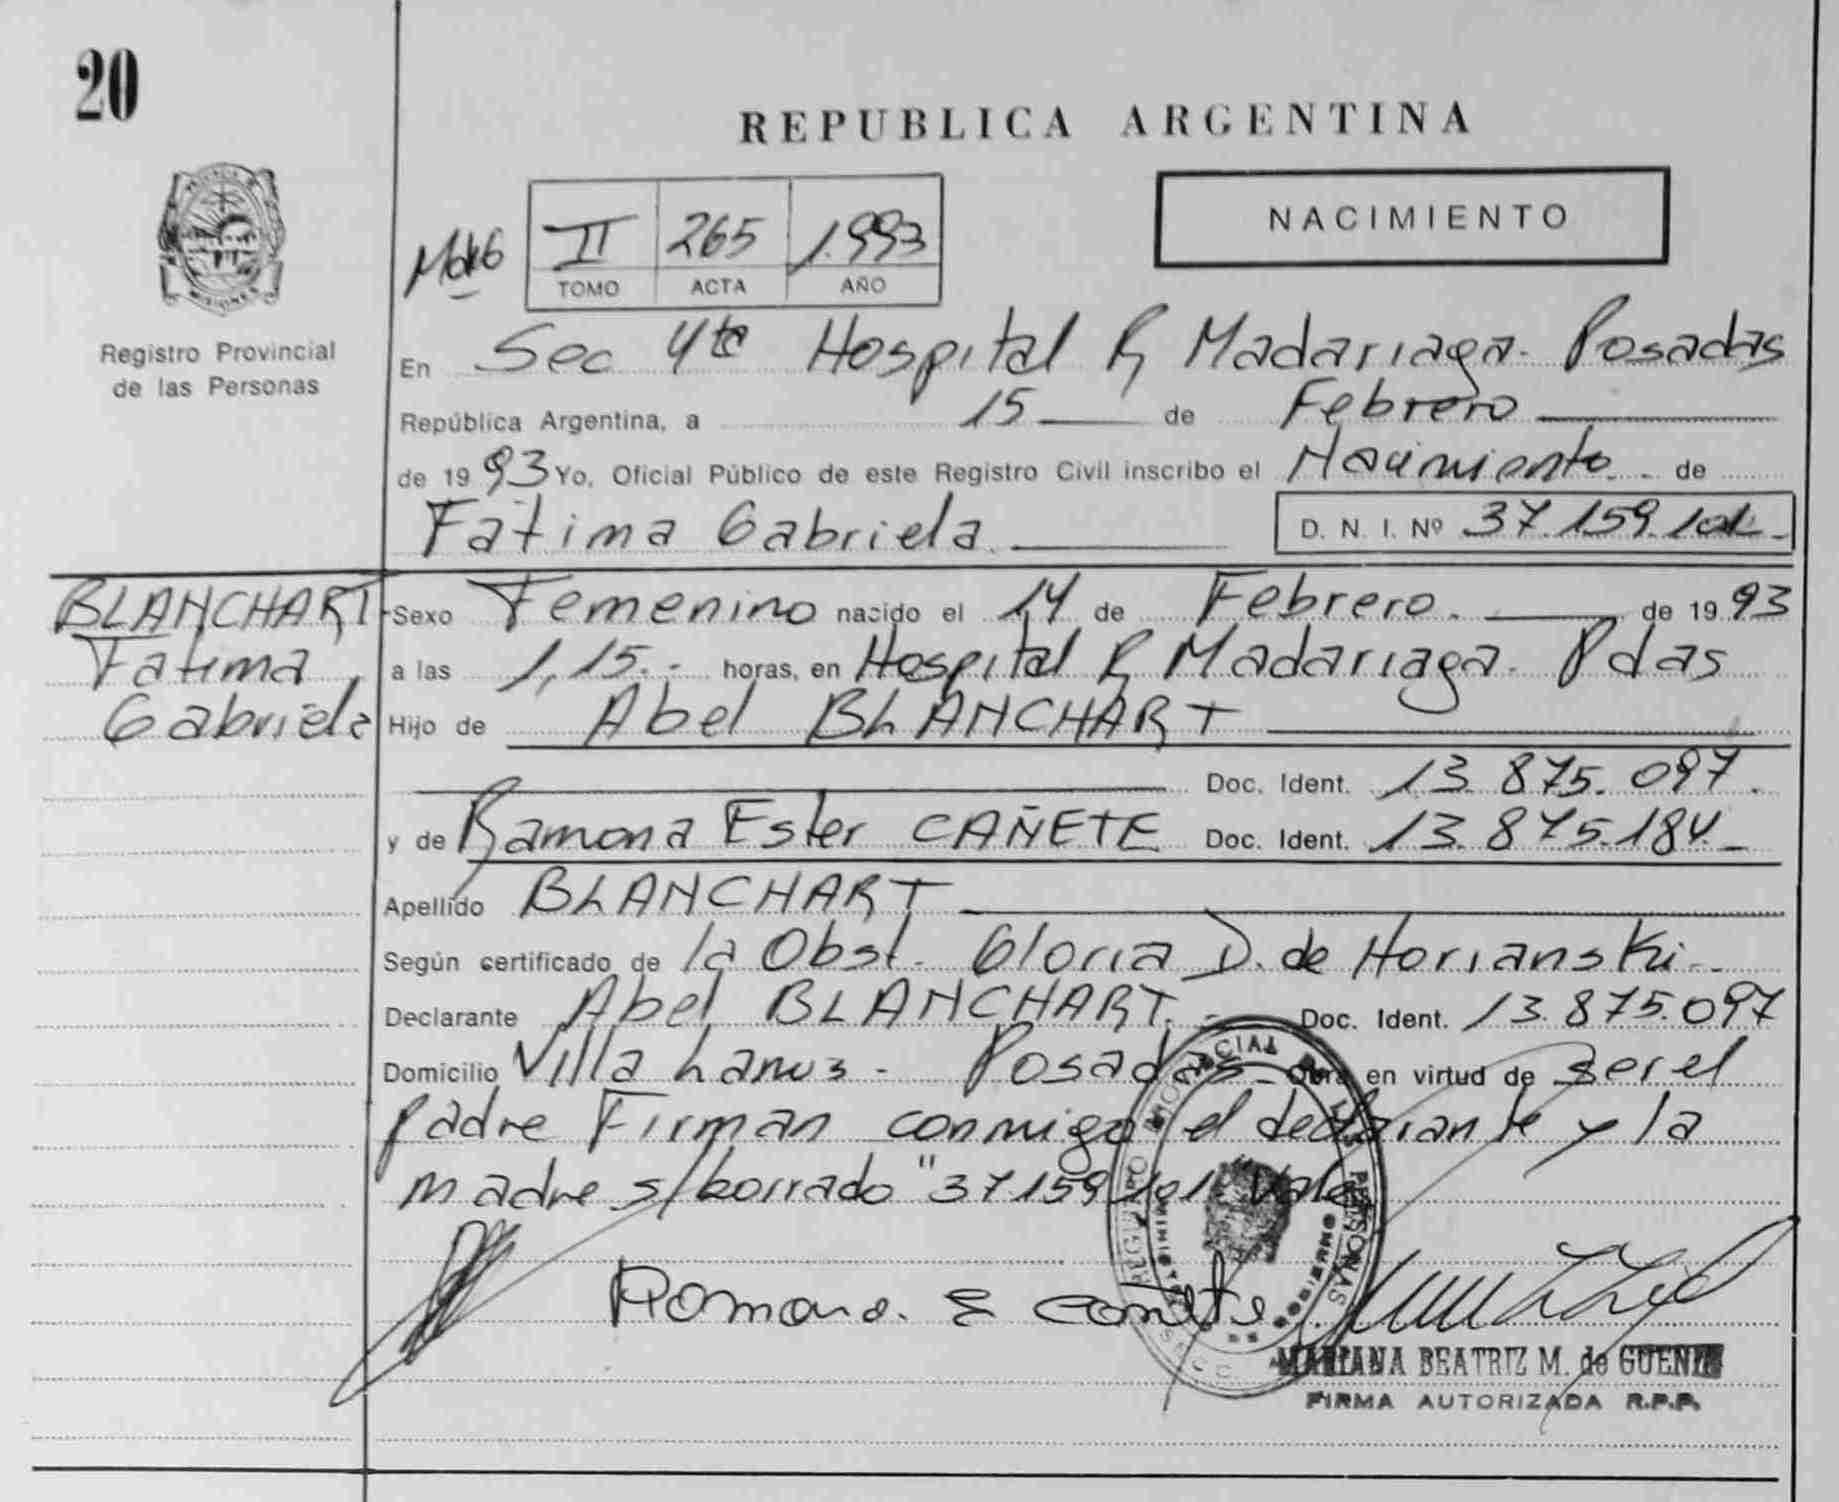 20
REPUBLICA ARGENTINA
NACIMIENTO
II 265 1.993
TOMO ACTA AÑO
Registro Provincial
de las Personas
MISIONES
En Sec 4ta Hospital R Madariaga- Posadas
República Argentina, a 15 de Febrero
de 1993 Yo, Oficial Público de este Registro Civil inscribo el Nacimiento.- de
Fátima Gabriela.
D. N. I. Nº 37.159.101.-
BLANCHART
Fátima
Gabriela
Sexo Femenino nacido el 14 de Febrero. de 1993
a las 1,15.- horas, en Hospital R Madariaga. Pdas
Hijo de Abel BLANCHART
Doc. Ident. 13.875.097.
y de Ramona Ester CAÑETE Doc. Ident. 13.875.184.-
Apellido BLANCHART
Según certificado de la Obst. Gloria D. de Horianski.-
Declarante Abel BLANCHART.- Doc. Ident. 13.875.097
Domicilio Villa Lanus - Posadas - Obra en virtud de ser el
padre Firman conmigo el declarante y la
madre s/borrado "37159101" Vale
Ramona. E Cañete
REGISTRO PROVINCIAL DE LAS PERSONAS
MARIANA BEATRIZ M. de
FIRMA AUTORIZADA R.P.P.